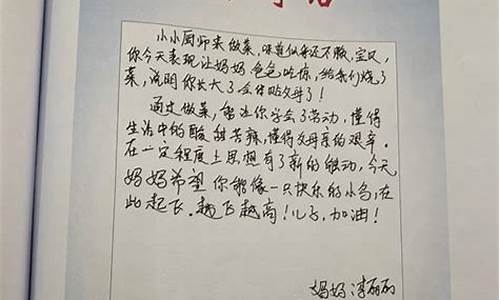 小小厨师来做菜，味道似乎还不赖，宝贝，
你今天表现让妈妈爸爸吃惊，给我们烧了
菜，说明你长大了，会体贴父母了！
通过做菜，曾让你学会了劳动，懂得
生活中的酸甜苦辣，懂得父母亲的艰辛。
在一定程度上思想有了新的触动，今天
妈妈希望你能像一只快乐的小鸟，在
此起飞，越飞越高！儿子，加油！
妈妈：李丽丽